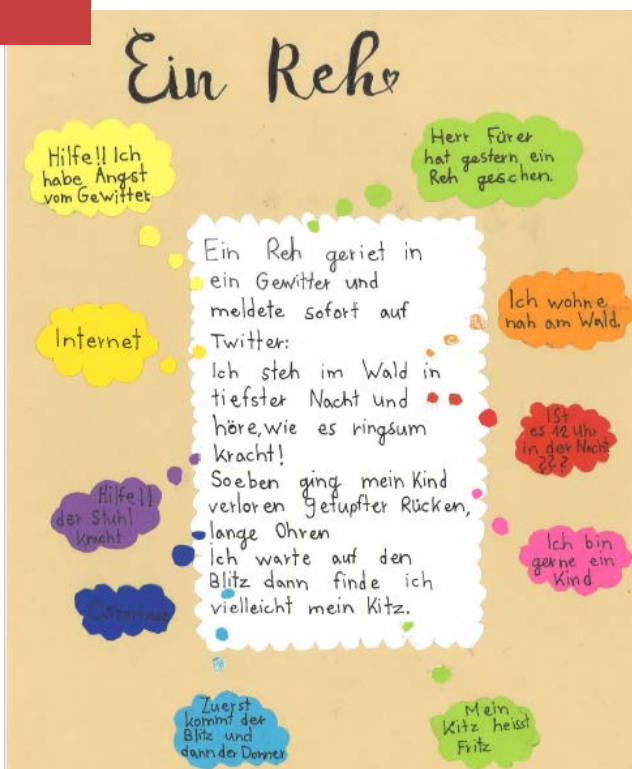 Ein Reh
Hilfe!! Ich
habe Angst
vom Gewitter
Herr Fürer
hat gestern ein
Reh geschen.
Ein Reh geriet in
ein Gewitter und
meldete sofort auf
Twitter:
Ich steh im Wald in
tiefster Nacht und
höre, wie es ringsum
kracht!
Soeben ging mein Kind
verloren Getupfter Rücken,
lange Ohren
Ich warte auf den
Blitz dann finde ich
vielleicht mein Kitz.
Internet
Ich wohne
nah am Wald.
Ist
es 12 Uhr
in der Nacht
???
Hilfe!!
der Stuhl
kracht
Ich bin
gerne ein
Kind
Osterhase
Zuerst
kommt der
Blitz und
dann der Donner
Mein
Kitz heisst
Fritz